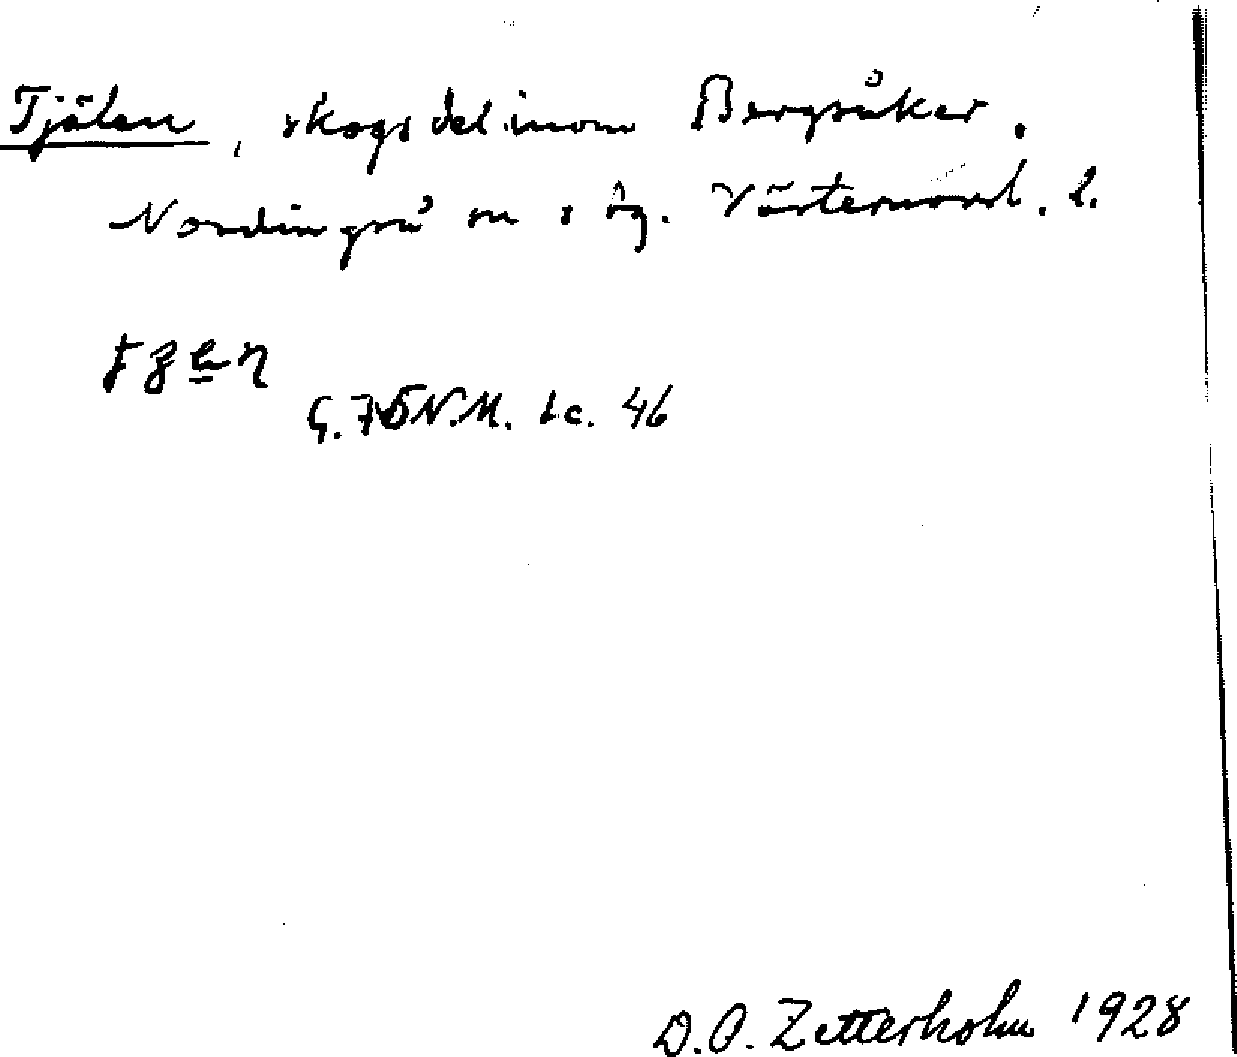 Tjälen, skogsdel inom Bergsåker.
Nordingrå sn o hg. Västernorrl. l.
G. 75 N.M. bc. 46
D.O. Zetterholm 1928